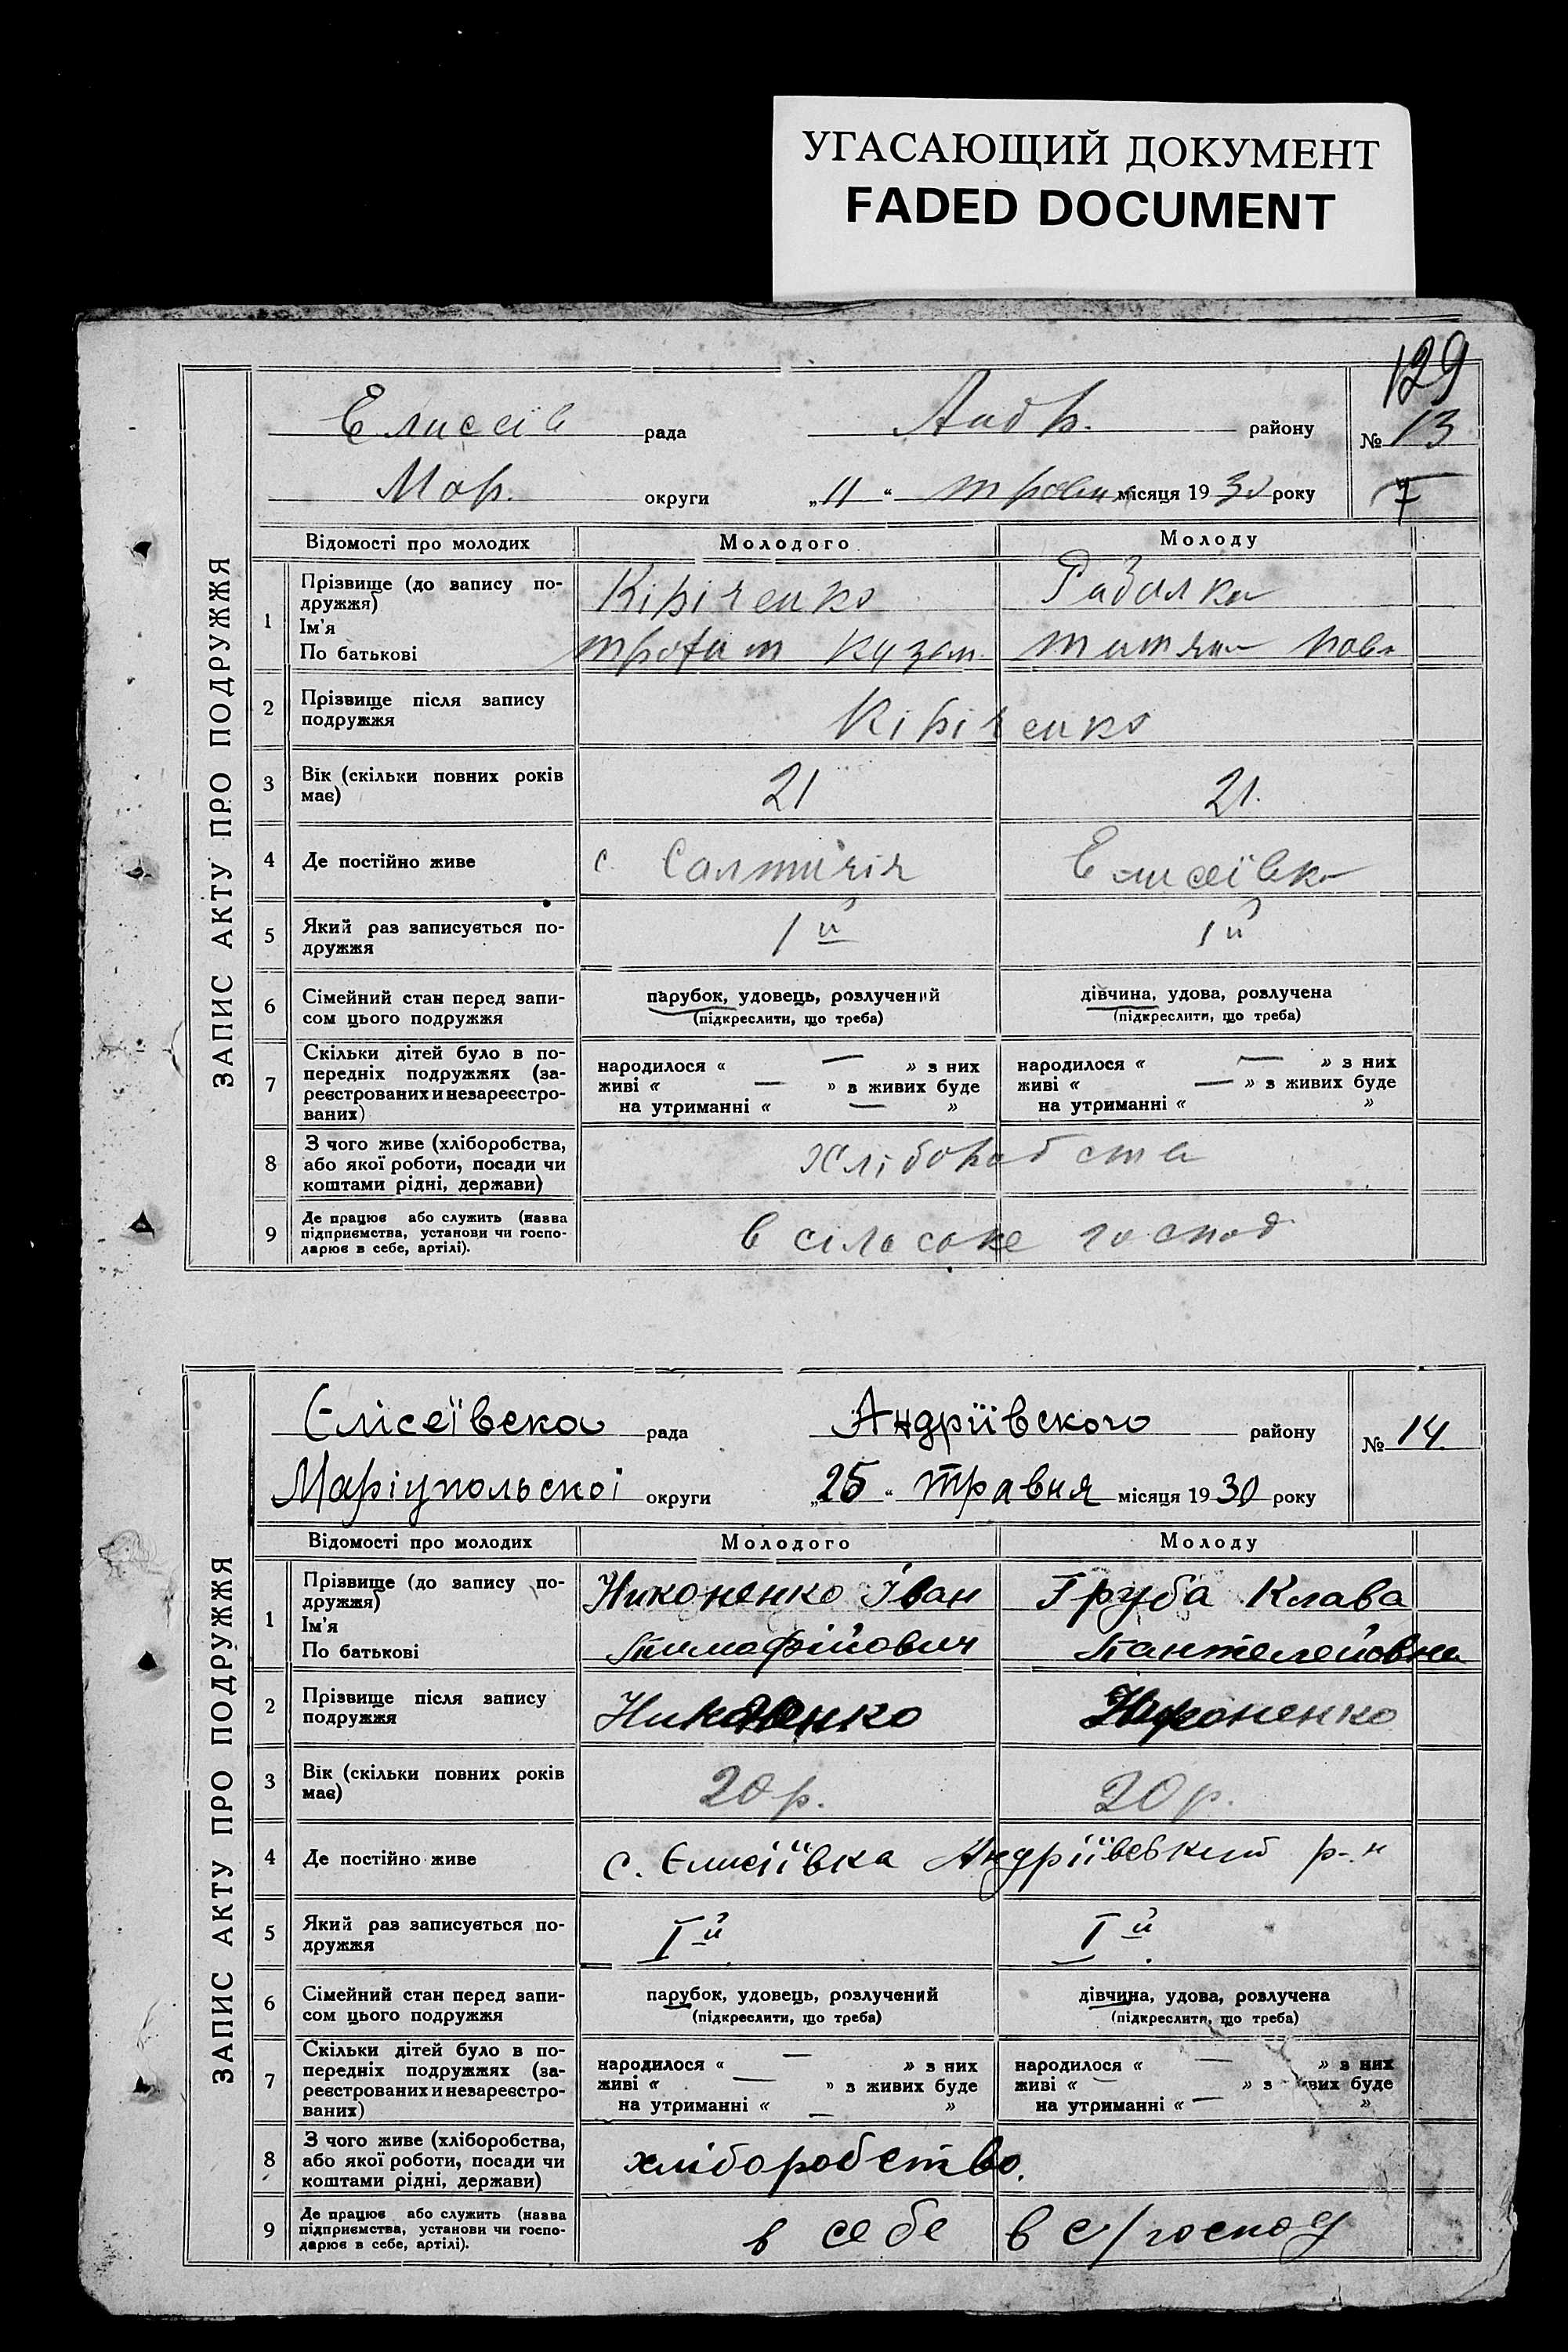 УГАСАЮЩИЙ ДОКУМЕНТ
FADED DOCUMENT
129
ЗАПИС АКТУ ПРО ПОДРУЖЖЯ
Елисеїв рада Андр. району № 13
Мар. округи „11“ травня місяця 1930 року 7
Відомості про молодих Молодого Молоду
1 Прізвище (до запису по-
дружжя)
Ім'я
По батькові
Кіріченко
Кузом
Татяна Павл
2 Прізвище після запису
подружжя
Кіріченко
3 Вік (скільки повних років
має)
21 21.
4 Де постійно живе
с Салтичія Елисеївка
5 Який раз записується по-
дружжя
1й 1й
6 Сімейний стан перед запи-
сом цього подружжя
парубок, удовець, розлучений
(підкреслити, що треба)
дівчина, удова, розлучена
(підкреслити, що треба)
7 Скільки дітей було в по-
передніх подружжях (за-
реєстрованих и незареєстро-
ваних)
народилося « — » з них
живі « — » з живих буде
на утриманні « — »
народилося « — » з них
живі « — » з живих буде
на утриманні « »
8 З чого живе (хліборобства,
або якої роботи, посади чи
коштами рідні, держави)
хліборобства
9 Де працює або служить (назва
підприємства, установи чи госпо-
дарює в себе, артілі).
в сільське господ
ЗАПИС АКТУ ПРО ПОДРУЖЖЯ
Єлісеївска рада Андріївского району № 14.
Маріупольскої округи „25“ травня місяця 1930 року
Відомості про молодих Молодого Молоду
1 Прізвище (до запису по-
дружжя)
Ім'я
По батькові
Никоненко Іван
Тимафійович
Груба Клава
Пантелейовна
2 Прізвище після запису
подружжя
Никоненко Никоненко
3 Вік (скільки повних років
має)
20 р. 20 р.
4 Де постійно живе
с. Єлисіївка Андріївський р-н
5 Який раз записується по-
дружжя
Iй. Iй.
6 Сімейний стан перед запи-
сом цього подружжя
парубок, удовець, розлучений
(підкреслити, що треба)
дівчина, удова, розлучена
(підкреслити, що треба)
7 Скільки дітей було в по-
передніх подружжях (за-
реєстрованих и незареєстро-
ваних)
народилося « — » з них
живі « — » з живих буде
на утриманні « — »
народилося « — » з них
живі « — » з живих буде
на утриманні « — »
8 З чого живе (хліборобства,
або якої роботи, посади чи
коштами рідні, держави)
хліборобство.
9 Де працює або служить (назва
підприємства, установи чи госпо-
дарює в себе, артілі).
в себе в с/господ